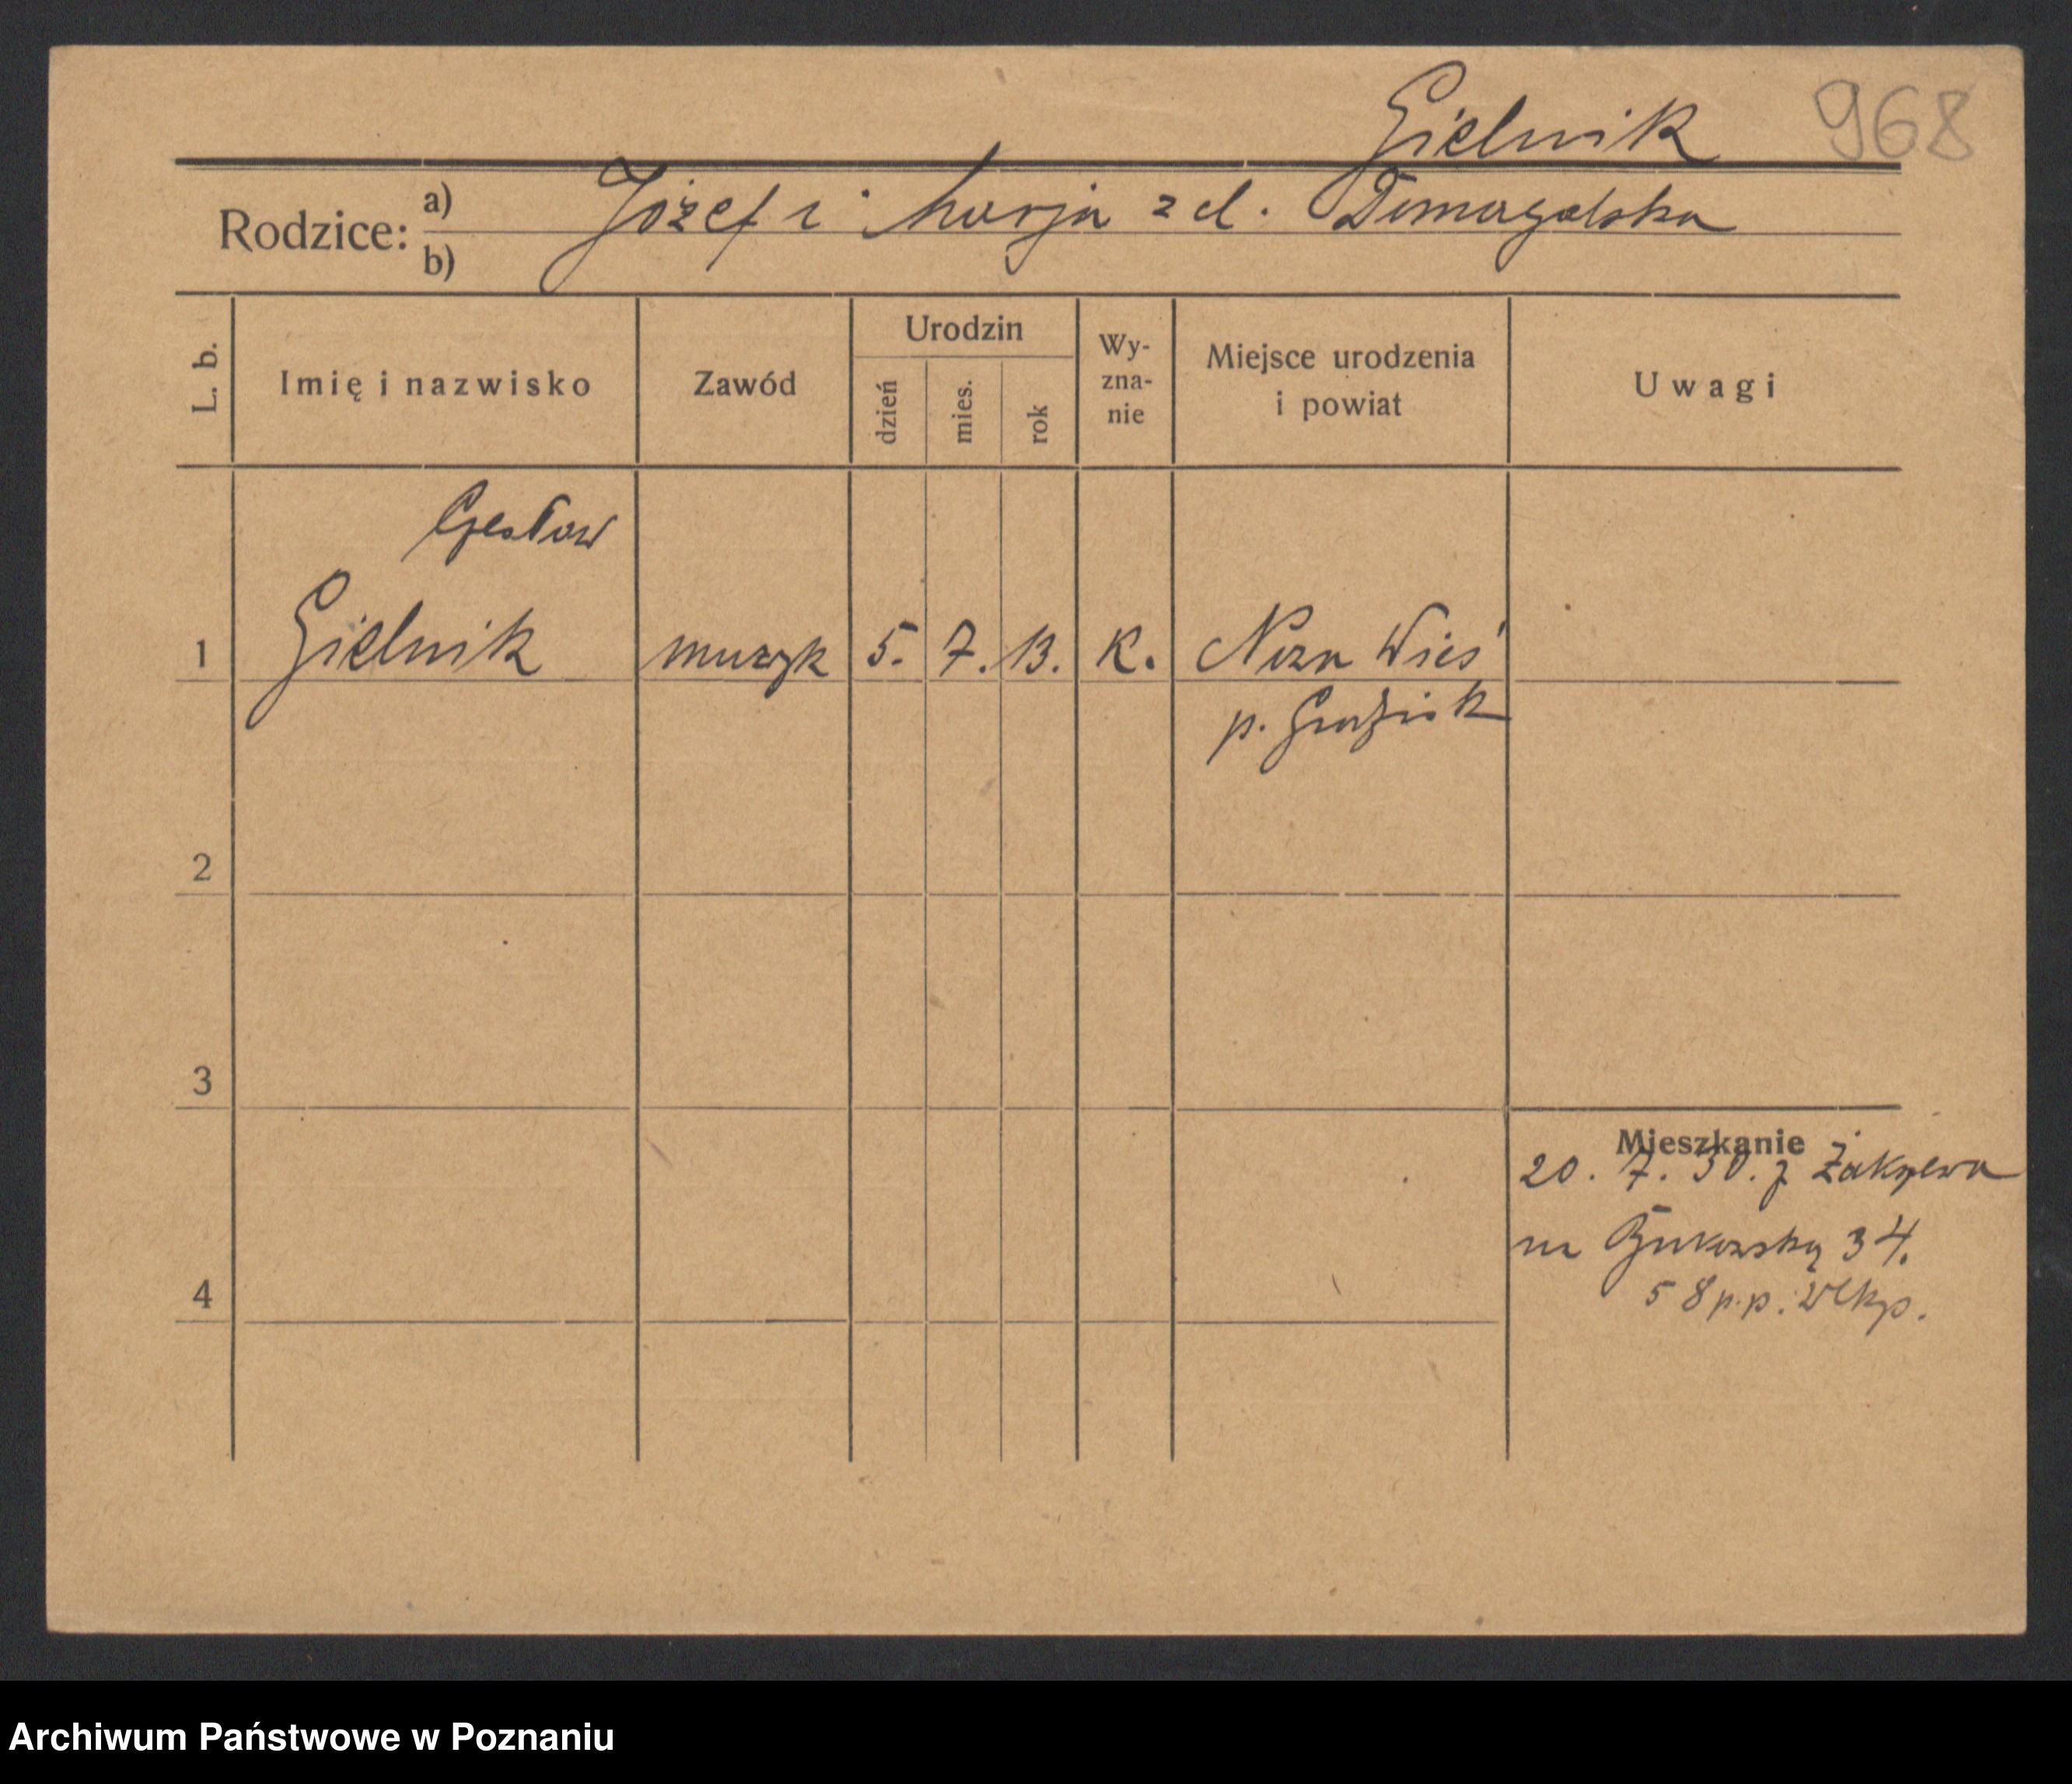 Gielnik 968
Rodzice: a) Józef i Marja z d. Domagalska
b)
L. b. Imię i nazwisko Zawód Urodzin dzień mies. rok Wy-zna-nie Miejsce urodzenia i powiat Uwagi
Czesław
1 Gielnik muzyk 5. 7. 13. K. Nowa Wieś
p. Grodzisk
2
3
Mieszkanie
20. 7. 30. z Zakrzewa
na Bukowską 34.
4
58 p.p. Wlkp.
Archiwum Państwowe w Poznaniu